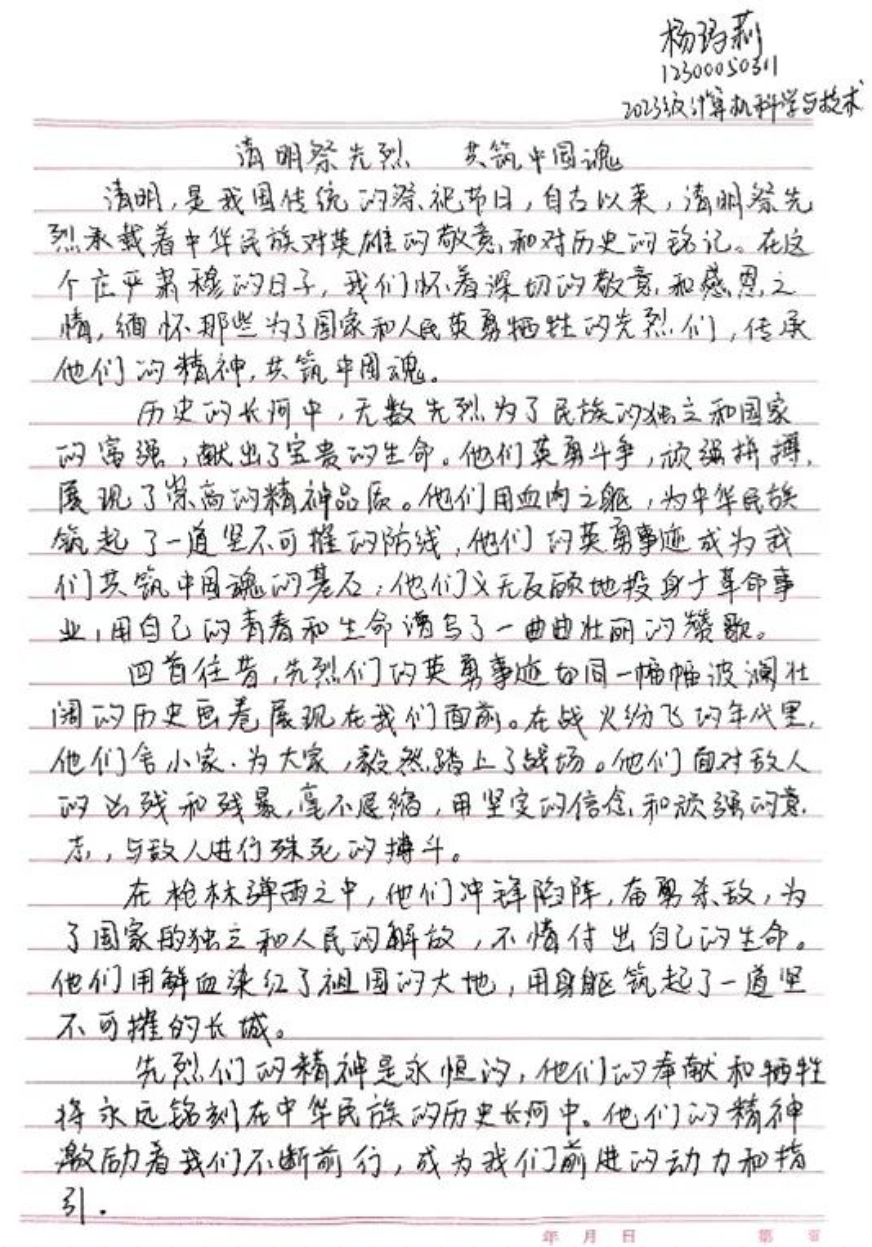 杨玛莉
12300050311
2023级计算机科学与技术
清明祭先烈 共筑中国魂
清明,是我国传统的祭祀节日,自古以来,清明祭先
烈承载着中华民族对英雄的敬意和对历史的铭记。在这
个庄严肃穆的日子,我们怀着深切的敬意和感恩之
情,缅怀那些为了国家和人民英勇牺牲的先烈们,传承
他们的精神,共筑中国魂。
历史的长河中,无数先烈为了民族的独立和国家
的富强,献出了宝贵的生命。他们英勇斗争,顽强拼搏,
展现了崇高的精神品质。他们用血肉之躯,为中华民族
筑起了一道坚不可摧的防线,他们的英勇事迹成为我
们共筑中国魂的基石;他们义无反顾地投身于革命事
业,用自己的青春和生命谱写了一曲曲壮丽的赞歌。
回首往昔,先烈们的英勇事迹如同一幅幅波澜壮
阔的历史画卷展现在我们面前。在战火纷飞的年代里,
他们舍小家、为大家,毅然踏上了战场。他们面对敌人
的凶残和残暴,毫不退缩,用坚定的信念和顽强的意
志,与敌人进行殊死的搏斗。
在枪林弹雨之中,他们冲锋陷阵,奋勇杀敌,为
了国家的独立和人民的解放,不惜付出自己的生命。
他们用鲜血染红了祖国的大地,用身躯筑起了一道坚
不可摧的长城。
先烈们的精神是永恒的,他们的奉献和牺牲
将永远铭刻在中华民族的历史长河中。他们的精神
激励着我们不断前行,成为我们前进的动力和指
引.
年 月 日 第